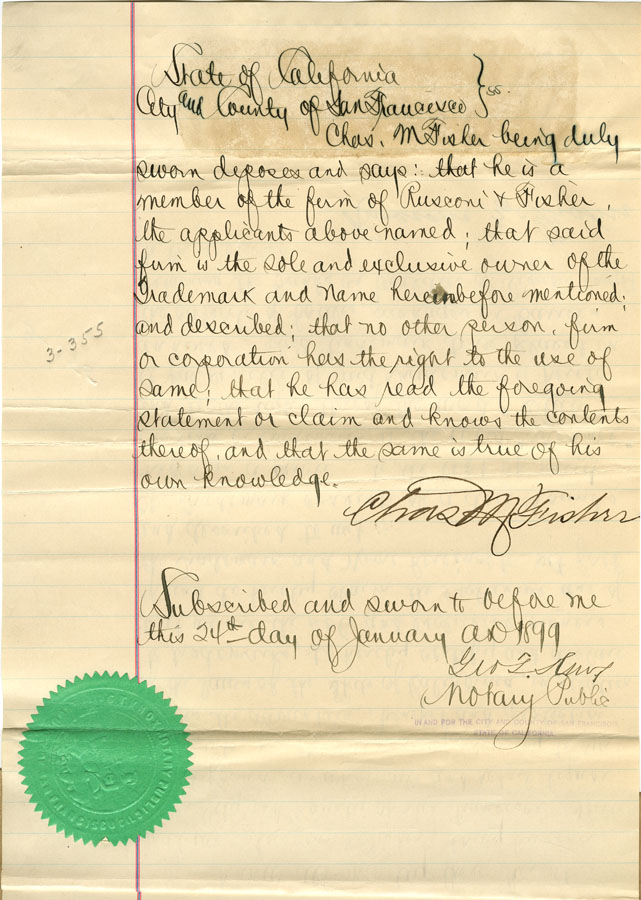 State of California
City and County of San Francisco } ss.
Chas. M Fisher being duly
sworn deposes and says: that he is a
member of the firm of Rusconi & Fisher,
the applicants above named; that said
firm is the sole and exclusive owner of the
Trademark and Name hereinbefore mentioned;
and described; that no other person, firm
or corporation has the right to the use of
same; that he has read the foregoing
statement or claim and knows the contents
thereof, and that the same is true of his
own knowledge.
3-355
Chas M Fisher
Subscribed and sworn to before me
this 24th day of January AD 1899
Geo T.
Notary Public
IN AND FOR THE CITY AND COUNTY OF SAN FRANCISCO
STATE OF CALIFORNIA